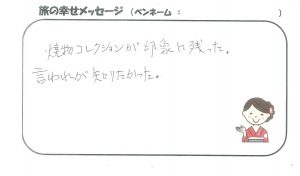 旅の幸せメッセージ（ペンネーム：　　　　　　）
焼物コレクションが印象に残った。
言われが知りたかった。